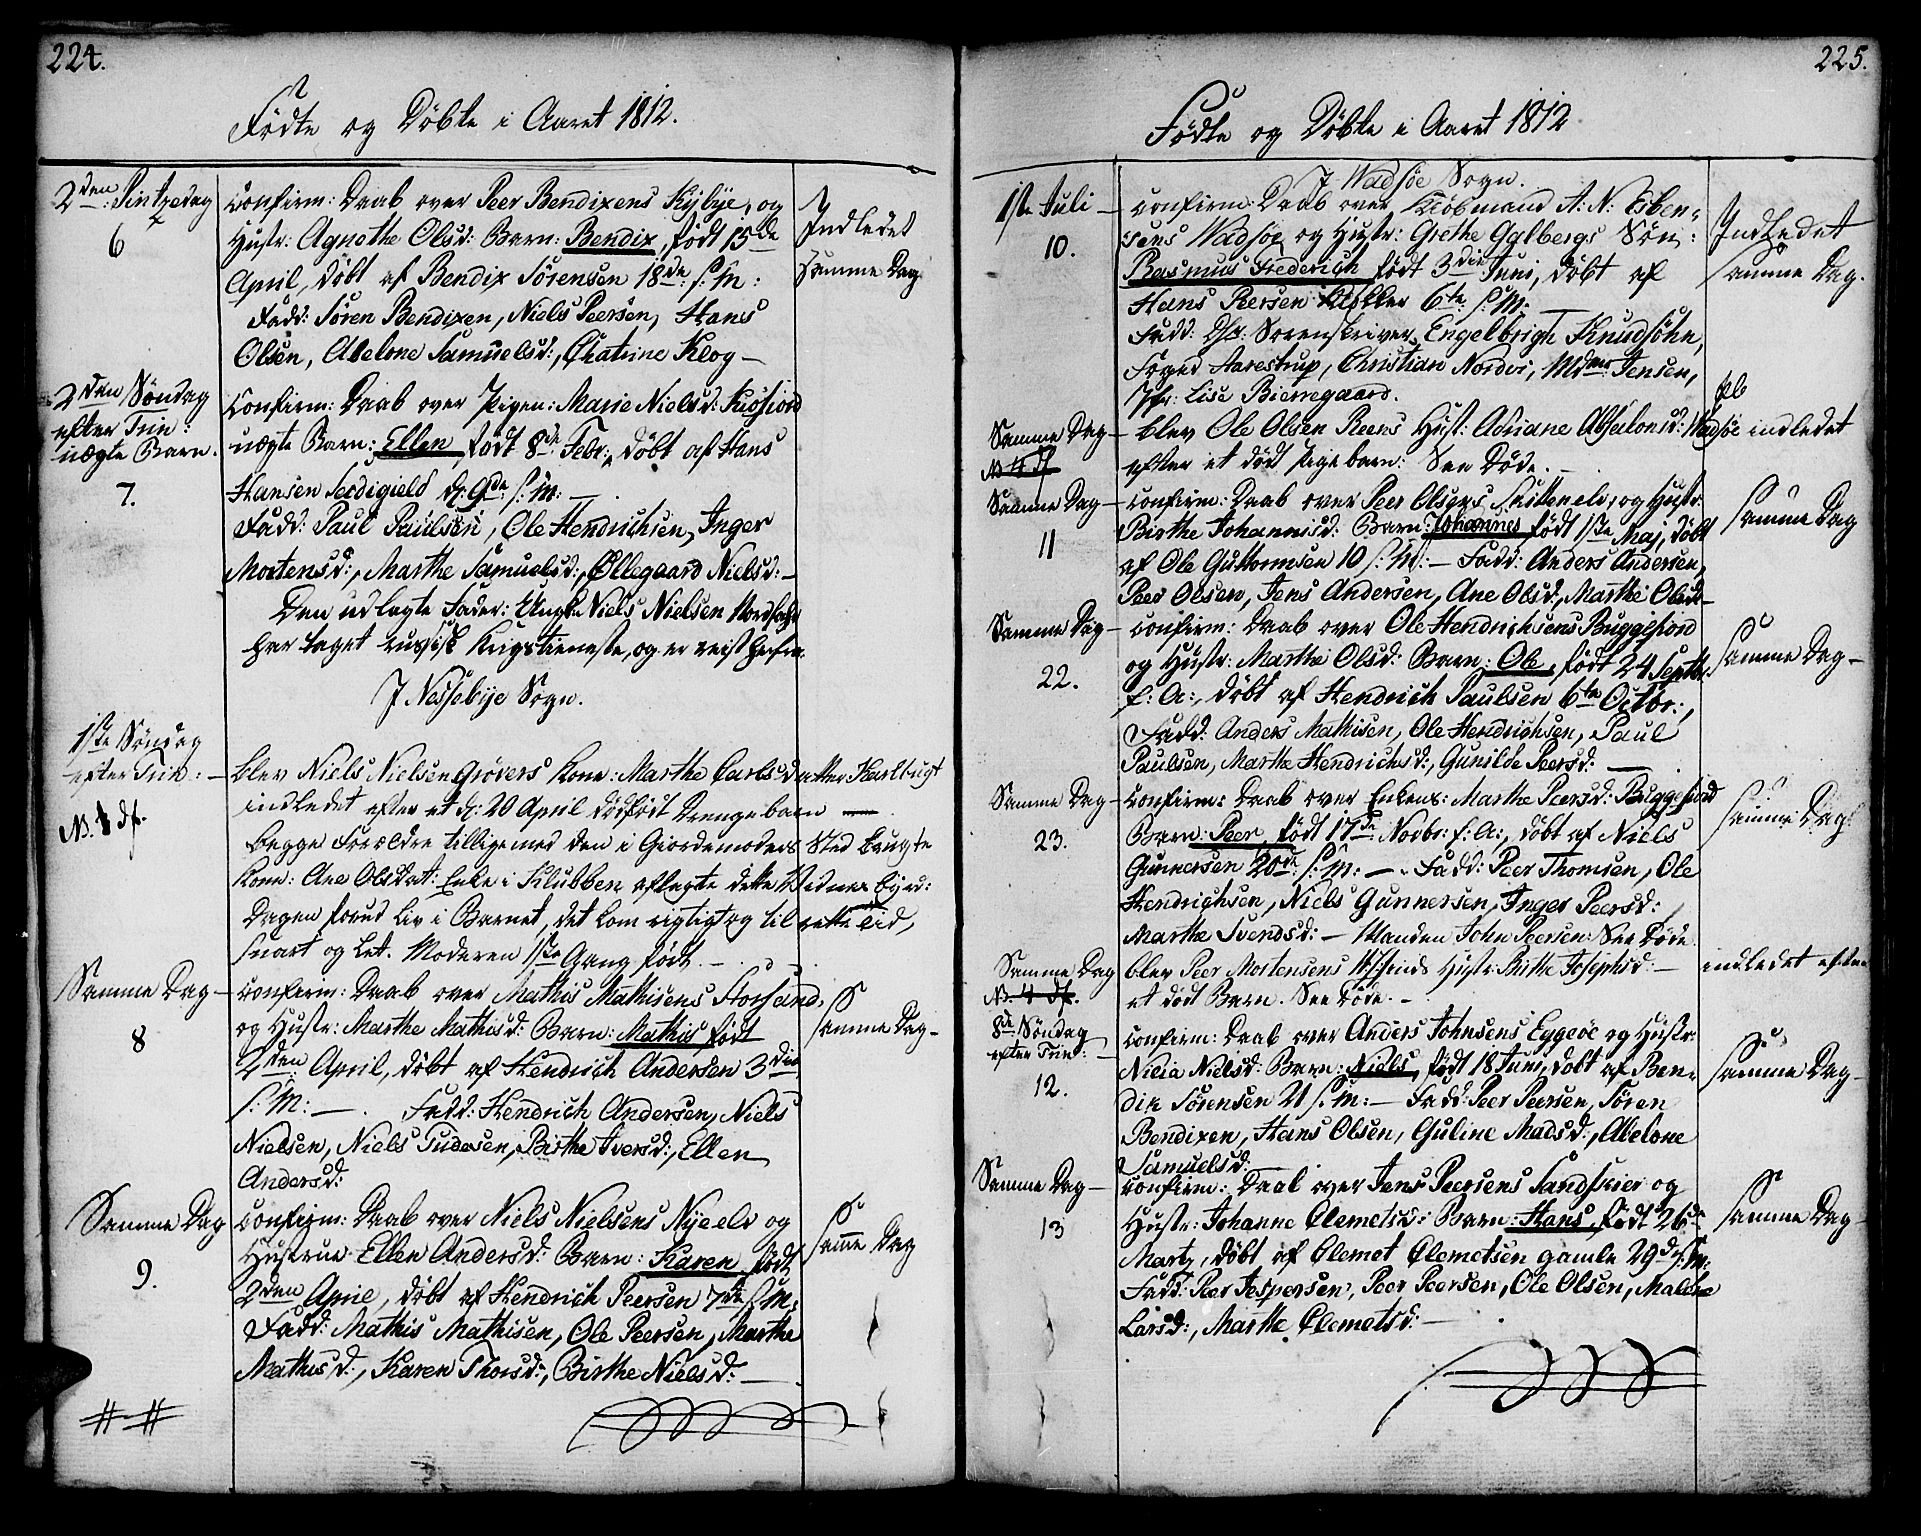 224.
Fødte og Døbte i Aaret 1812.
2den Pintzedag
6
Confirm: Daab over Peer Bendixens Kybye, og
Hustr: Agnethe Olsd: Barn: Bendix, født 15de
April, døbt af Bendix Sörensen 18de s: M:
Fadd: Sören Bendixen, Niels Peersen, Hans
Olsen, Abelone Samuelsd:, Chatrine Klog —
Indledet
samme Dag
2den Söndag
efter Trin:
uægte Barn.
7.
Confirm: Daab over Pigen: Marie Nielsd:
uægte Barn: Ellen, født 8de Febr:, døbt af Hans
Hansen d: 9de s: M: —
Fadd: Paul Paulsen, Ole Hendrichsen, Inger
Mortensd:, Marthe Samuelsd:, Ollegaard Nielsd: —
Den udlagte Fader: Ungk: Niels Nielsen
har taget russisk Krigstieneste, og er reist herfra.
I Nessebye Sogn.
1ste Söndag
efter Trin: —
No. 1 df.
blev Niels Nielsen Grövers Kone: Marthe Carlsdatter Karlbugt
indledet efter et d: 20 April dödfödt Drengebarn —
begge Forældre tilligemed den i Giordemoders Sted brugte
Kone: Ane Olsdat: Enke i Klubben aflagte dette Vidnesbyrd:
Dagen forud Liv i Barnet, det kom rigtigt og til rette Tid,
snart og let. Moderen 1ste Gang født. —
Samme Dag —
8
Confirm: Daab over Mathis Mathisens Storsand,
og Hustr: Marthe Mathisd: Barn: Mathis født
2den April, døbt af Hendrich Andersen 3die
s: M: — Fadd: Hendrich Andersen, Niels
Nielsen, Niels Tudesen, Birthe Iversd:, Ellen
Andersd:
Samme Dag —
Samme Dag
9.
Confirm: Daab over Niels Nielsens Nyeelv og
Hustrue Ellen Andersd: Barn: Karen født
2den April, døbt af Hendrich Peersen 7de s: M:
Fadd: Mathis Mathisen, Ole Peersen, Marthe
Mathisd:, Karen Thorsd:, Birthe Nielsd: —
Samme Dag
225.
Fødte og Døbte i Aaret 1812
I Wadsøe Sogn.
1ste Juli —
10.
Confirm: Daab over Kiöbmand A: N: Esben-
sens Wadsøe og Hustr: Grethe Galbergs Sön:
Rasmus Frederich født 3die Juni, døbt af
Hans Peersen Klokker 6te s: M: —
Fadd: Hr: Sorenskriver Engelbrigt Knudsöhn,
Foged Aarestrup, Christian Nordvi, Mdme Jensen,
Jfr: Lise Bierregaard.
Indledet
samme Dag.
Samme Dag —
No 4 df
blev Ole Olsen Reens Hust: Adriane Absalonsd: Wadsöe indledet
efter et dödt Pigebarn: See Döde. —
Samme Dag —
11
Confirm: Daab over Peer Olsens og Hustr:
Birthe Johannisd: Barn: Johannes født 1ste Maj, døbt
af Ole Guttormsen 10 s: M: — Fadd: Anders Andersen,
Peer Olsen, Jens Andersen, Ane Olsd:, Marthe Olsd: —
Samme Dag
Samme Dag —
22.
Confirm: Daab over Ole Hendrichsens Buggefiord
og Hustr: Marthe Olsd: Barn: Ole, født 24 Septbr:
f: A:, døbt af Hendrich Paulsen 6te Octbr:,
Fadd: Anders Mathisen, Ole Hendrichsen, Paul
Paulsen, Marthe Hendrichsd:, Gunilde Peersd: —
Samme Dag —
Samme Dag —
23.
Confirm: Daab over Enkens: Marthe Peersd: Buggefiord
Barn: Peer, født 17de Novbr: f: A:, døbt af Niels
Gunnersen 20de s: M: — Fadd: Peer Thomsen, Ole
Hendrichsen, Niels Gunnersen, Inger Peersd:,
Marthe Svendsd: — Manden John Peersen: See Döde
Samme Dag
Samme Dag
No. 4 df.
blev Peer Mortensens Hustr: Birthe Josephsd: — indledet efter
et dödt Barn. See Döde. —
8de Söndag
efter Trin: —
12.
Confirm: Daab over Anders Johnsens Eggeöe og Hustr:
Nilia Nielsd: Barn: Niels, født 18 Juni, døbt af Ben-
dix Sörensen 21 s: M: — Fadd: Peer Peersen, Sören
Bendixen, Hans Olsen, Guline Madsd:, Abelone
Samuelsd:
Samme Dag —
Samme Dag —
13
Confirm: Daab over Jens Peersens Sandskier og
Hustr: Johanne Clemetsd: Barn: Hans, født 26de
Marty, døbt af Clemet Clemetsen gamle 29de s: M:
Fadd: Peer Jespersen, Peer Peersen, Ole Olsen, Malene
Larsd:, Marthe Clemetsd: —
Samme Dag —